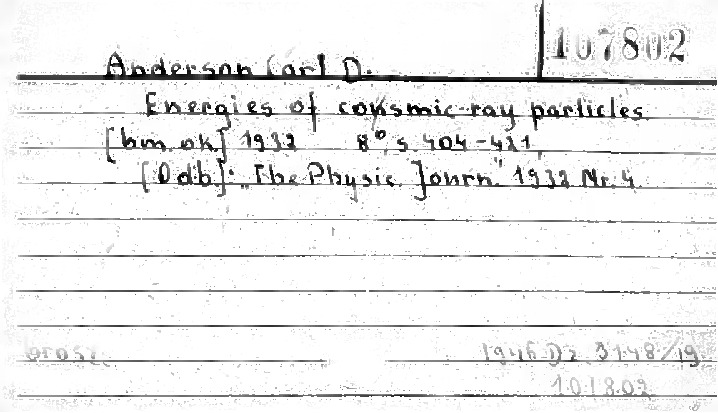 107802
Anderson Carl D.
Energies of cosmic-ray particles.
[b.m. ok.] 1932 8°, s. 404-421,
[Odb.]: "The Physic. Journ." 1932 Nr. 4
brosz.
1946 Dz. 3148/19
101802